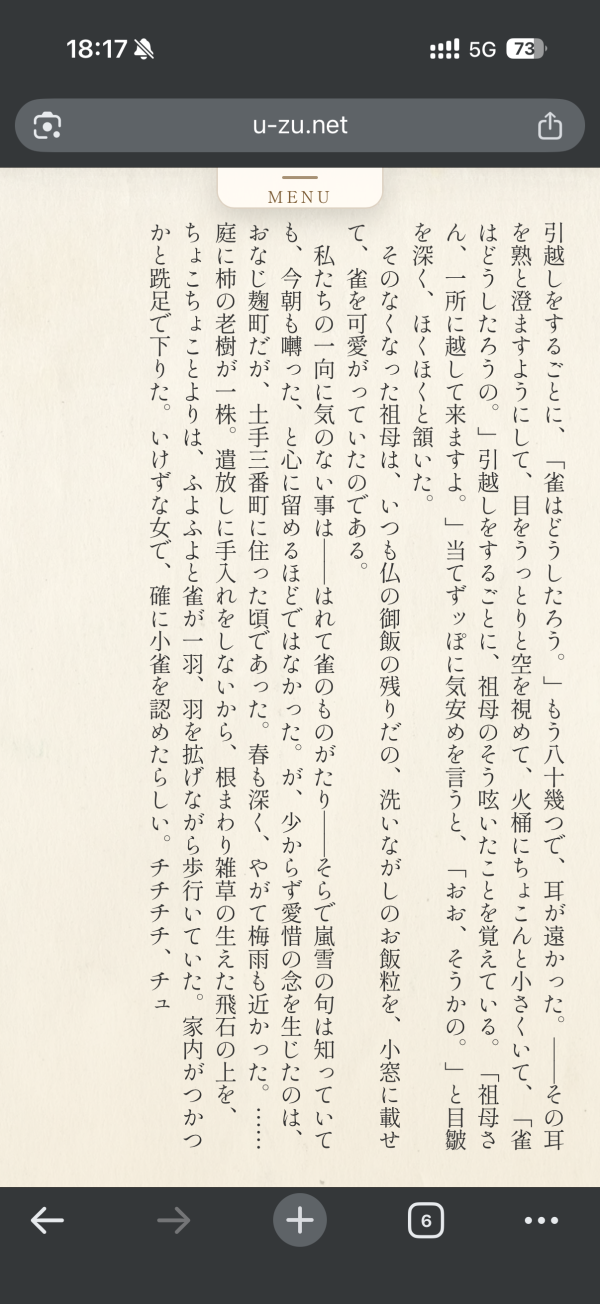 18:17
5G
73
u-zu.net
MENU
引越しをするごとに、「雀はどうしたろう。」もう八十幾つで、耳が遠かった。――その耳
を熟と澄ますようにして、目をうっとりと空を視めて、火桶にちょこんと小さくいて、「雀
はどうしたろうの。」引越しをするごとに、祖母のそう呟いたことを覚えている。「祖母さ
ん、一所に越して来ますよ。」当てずッぽに気安めを言うと、「おお、そうかの。」と目皺
を深く、ほくほくと頷いた。
そのなくなった祖母は、いつも仏の御飯の残りだの、洗いながしのお飯粒を、小窓に載せ
て、雀を可愛がっていたのである。
私たちの一向に気のない事は――はれて雀のものがたり――そらで嵐雪の句は知っていて
も、今朝も囀った、と心に留めるほどではなかった。が、少からず愛惜の念を生じたのは、
おなじ麹町だが、土手三番町に住った頃であった。春も深く、やがて梅雨も近かった。……
庭に柿の老樹が一株。遣放しに手入れをしないから、根まわり雑草の生えた飛石の上を、
ちょこちょことよりは、ふよふよと雀が一羽、羽を拡げながら歩行いていた。家内がつかつ
かと跣足で下りた。いけずな女で、確に小雀を認めたらしい。チチチチ、チュ
6